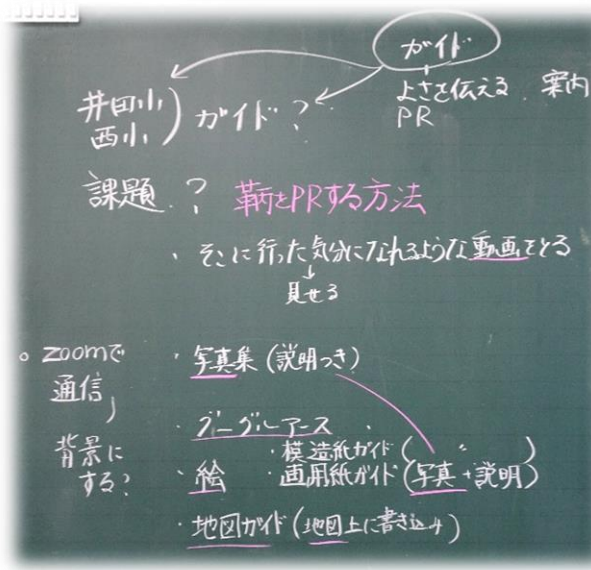 ガイド
よさを伝える 案内
PR
井田小
西小) ガイド?
課題 ? 鞆をPRする方法
・そこに行った気分になれるような動画をとる
↓
見せる
○ zoomで
通信
背景に
する?
・写真集(説明つき)
・グーグルアース
・模造紙ガイド( 〃 )
・絵 ・画用紙ガイド(写真+説明)
・地図ガイド(地図上に書き込み)